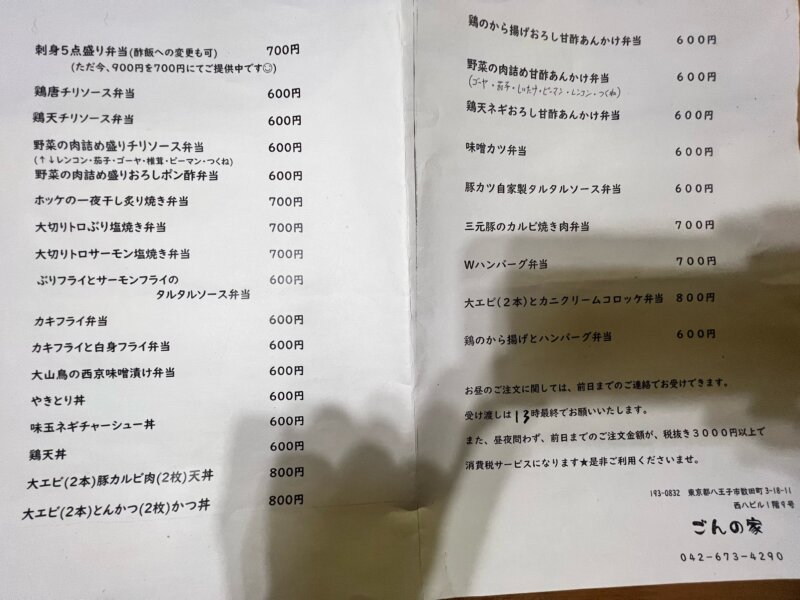 刺身5点盛り弁当(酢飯への変更も可) 700円
(ただ今、900円を700円にてご提供中です☺)
鶏唐チリソース弁当 600円
鶏天チリソース弁当 600円
野菜の肉詰め盛りチリソース弁当 600円
(↑↓レンコン・茄子・ゴーヤ・椎茸・ピーマン・つくね)
野菜の肉詰め盛りおろしポン酢弁当 600円
ホッケの一夜干し炙り焼き弁当 700円
大切りトロぶり塩焼き弁当 700円
大切りトロサーモン塩焼き弁当 700円
ぶりフライとサーモンフライの 600円
タルタルソース弁当
カキフライ弁当 600円
カキフライと白身フライ弁当 600円
大山鳥の西京味噌漬け弁当 600円
やきとり丼 600円
味玉ネギチャーシュー丼 600円
鶏天丼 600円
大エビ(2本)豚カルビ肉(2枚)天丼 800円
大エビ(2本)とんかつ(2枚)かつ丼 800円
鶏のから揚げおろし甘酢あんかけ弁当 600円
野菜の肉詰め甘酢あんかけ弁当 600円
(ゴーヤ・茄子・しいたけ・ピーマン・レンコン・つくね)
鶏天ネギおろし甘酢あんかけ弁当 600円
味噌カツ弁当 600円
豚カツ自家製タルタルソース弁当 600円
三元豚のカルビ焼き肉弁当 700円
Wハンバーグ弁当 700円
大エビ(2本)とカニクリームコロッケ弁当 800円
鶏のから揚げとハンバーグ弁当 600円
お昼のご注文に関しては、前日までのご連絡でお受けできます。
受け渡しは13時最終でお願いいたします。
また、昼夜問わず、前日までのご注文金額が、税抜き3000円以上で
消費税サービスになります★是非ご利用くださいませ。
193-0832 東京都八王子市散田町3-18-11
西八ビル1階9号
ごんの家
042-673-4290